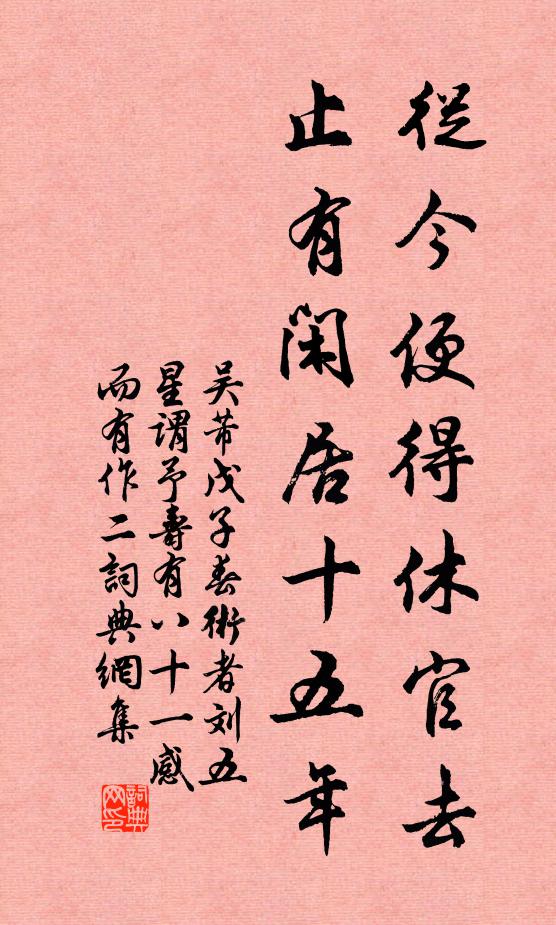 從今便得休官去
止有閑居十五年
吴芾戊子春術者刘五
星謂予壽有八十一感
而有作二詞典網集
詞典網印